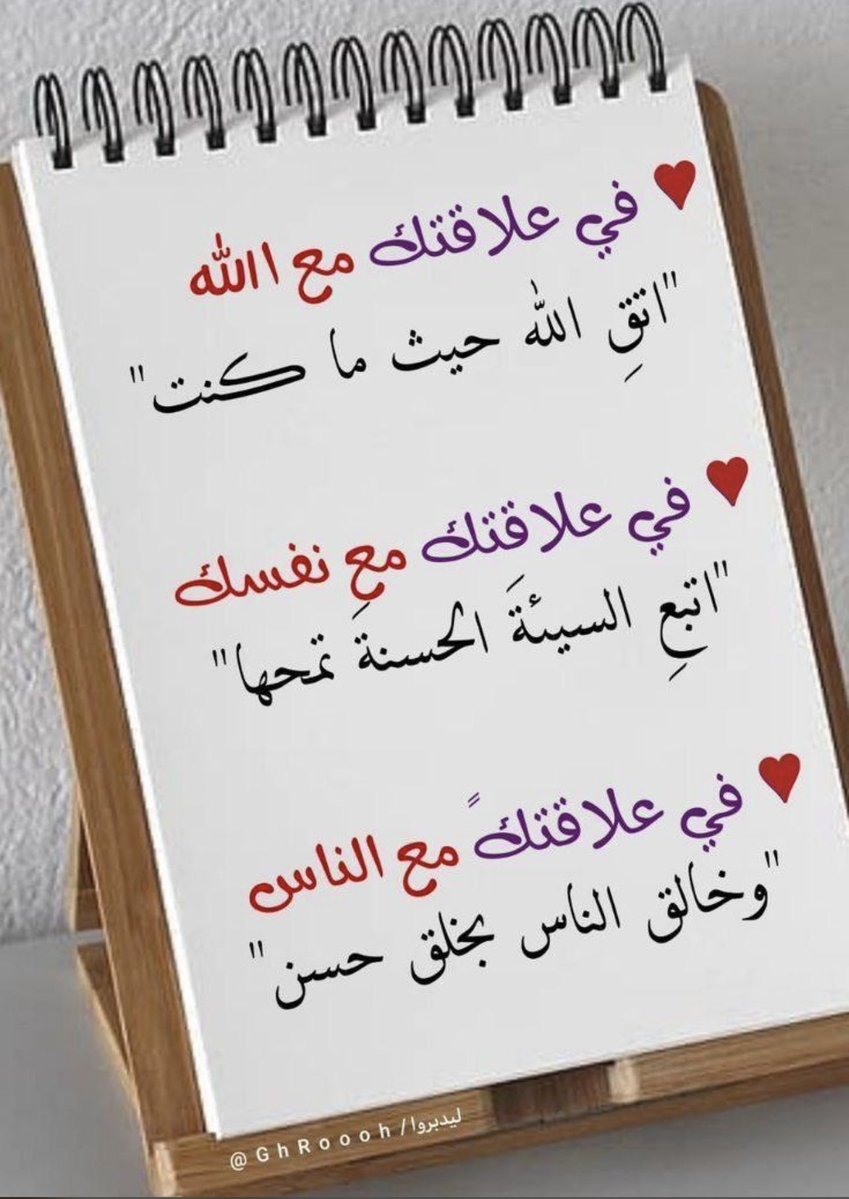 في علاقتك مع االله
"اتقِ الله حيث ما كنت"
في علاقتك معِ نفسك
"اتبعِ السيئةَ الحسنةَ تمحها"
في علاقتكً مع الناس
"وخالق الناس بخلق حسن"
@GhRoooh/ليدبروا